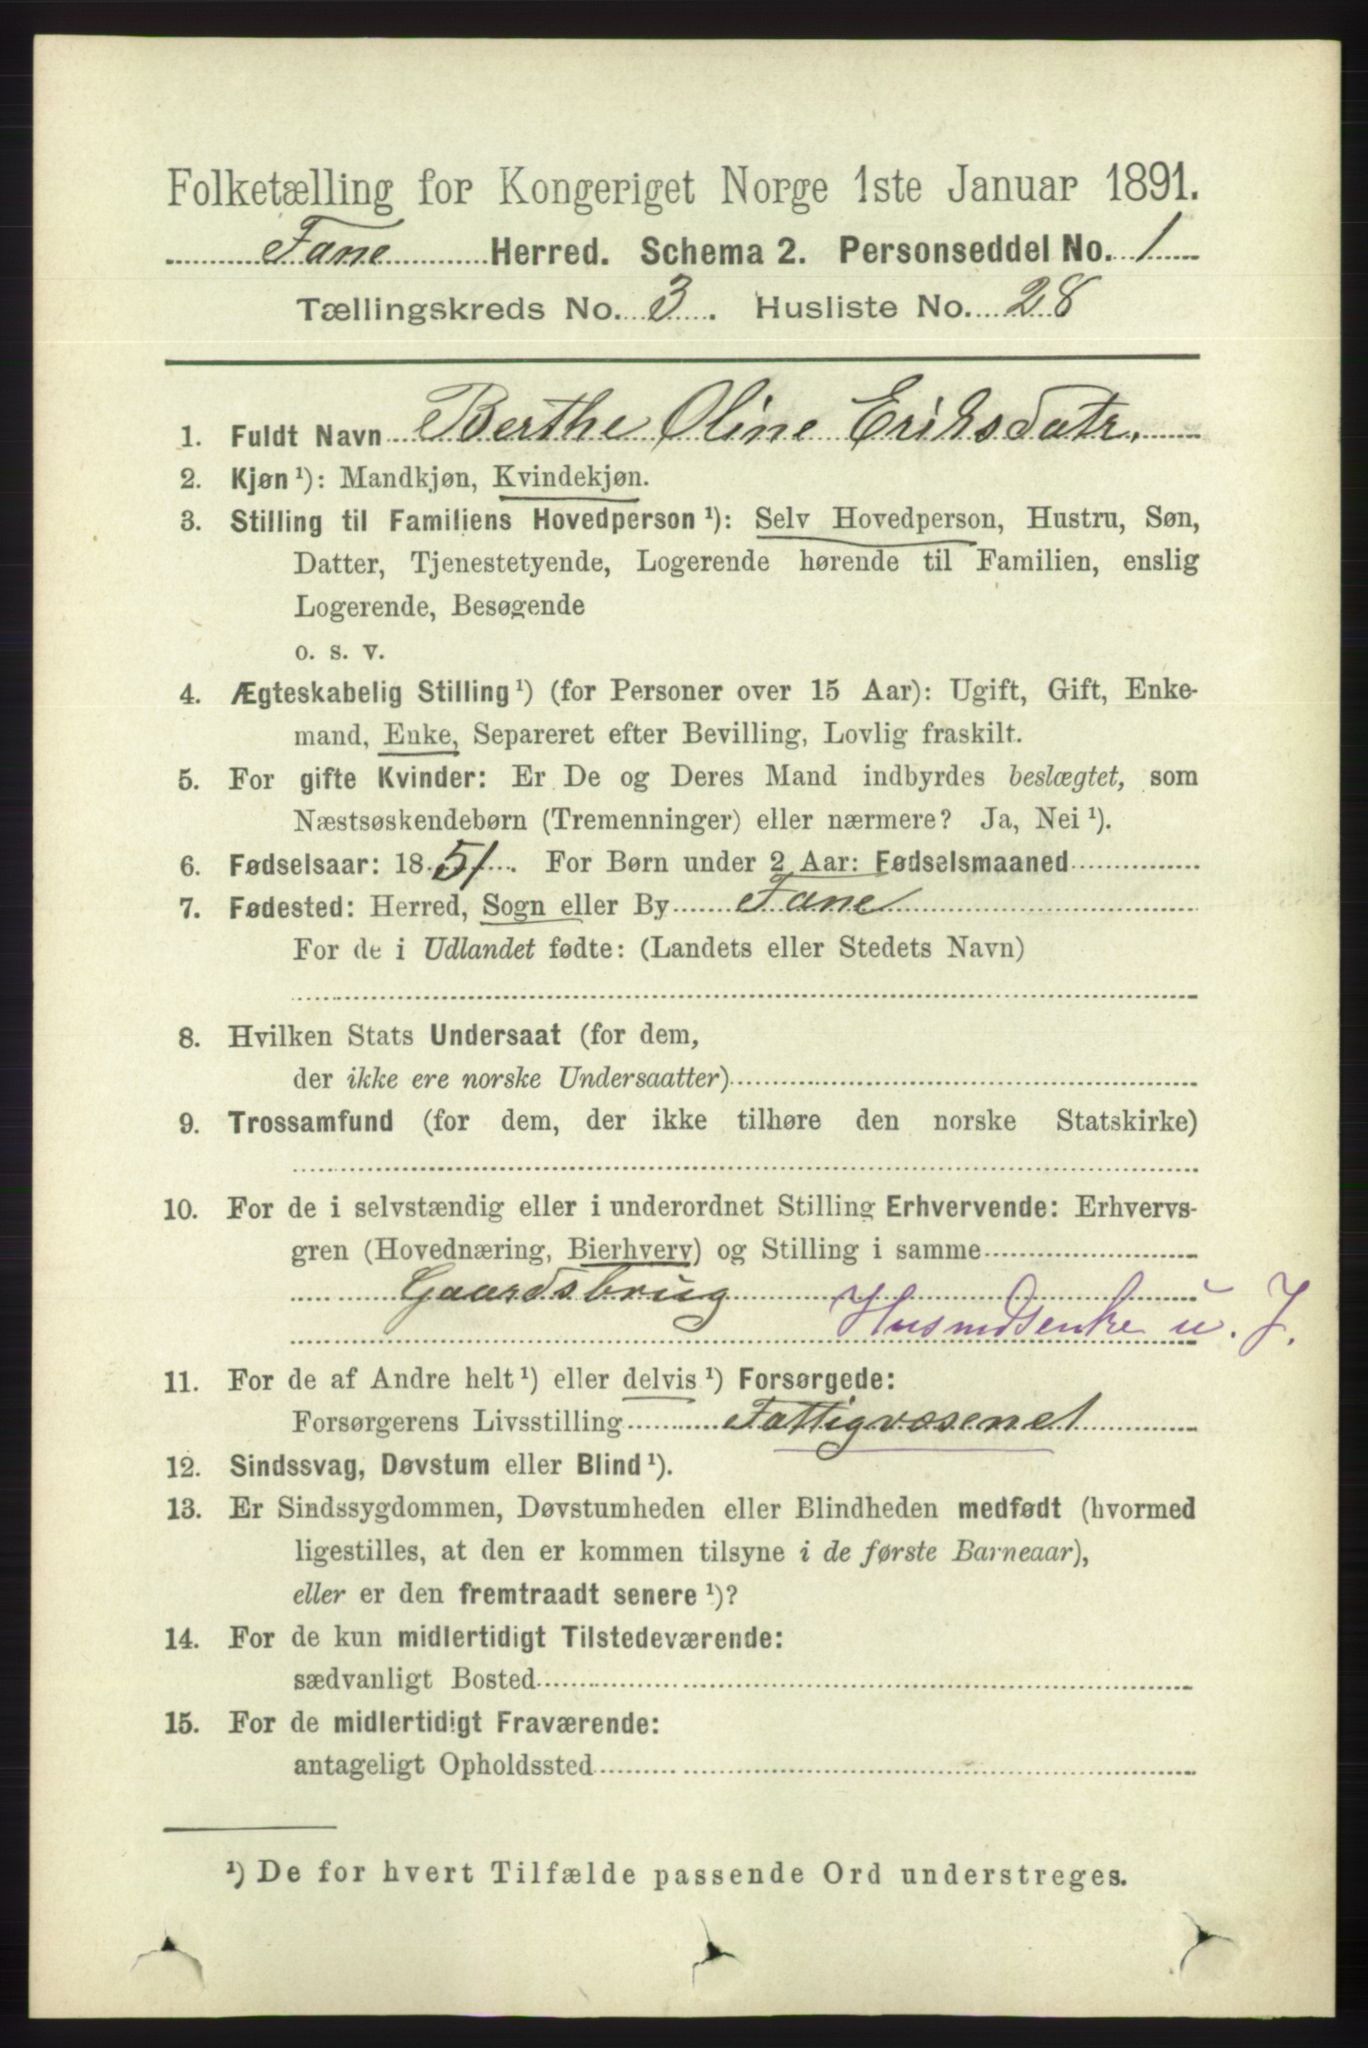 Folketælling for Kongeriget Norge 1ste Januar 1891.
Fane Herred. Schema 2. Personseddel No. 1
Tællingskreds No. 3. Husliste No. 28
1. Fuldt Navn Berthe Oline Eriksdatr.
2. Kjøn ¹): Mandkjøn, Kvindekjøn.
3. Stilling til Familiens Hovedperson ¹): Selv Hovedperson, Hustru, Søn,
Datter, Tjenestetyende, Logerende hørende til Familien, enslig
Logerende, Besøgende
o. s. v.
4. Ægteskabelig Stilling ¹) (for Personer over 15 Aar): Ugift, Gift, Enke-
mand, Enke, Separeret efter Bevilling, Lovlig fraskilt.
5. For gifte Kvinder: Er De og Deres Mand indbyrdes beslægtet, som
Næstsøskendebørn (Tremenninger) eller nærmere? Ja, Nei ¹).
6. Fødselsaar: 1851. For Børn under 2 Aar: Fødselsmaaned
7. Fødested: Herred, Sogn eller By Fane
For de i Udlandet fødte: (Landets eller Stedets Navn)
8. Hvilken Stats Undersaat (for dem,
der ikke ere norske Undersaatter)
9. Trossamfund (for dem, der ikke tilhøre den norske Statskirke)
10. For de i selvstændig eller i underordnet Stilling Erhvervende: Erhvervs-
gren (Hovednæring, Bierhverv) og Stilling i samme
Gaardsbrug Husmdsenke u. J.
11. For de af Andre helt ¹) eller delvis ¹) Forsørgede:
Forsørgerens Livsstilling Fattigvæsenet
12. Sindssvag, Døvstum eller Blind ¹).
13. Er Sindssygdommen, Døvstumheden eller Blindheden medfødt (hvormed
ligestilles, at den er kommen tilsyne i de første Barneaar),
eller er den fremtraadt senere ¹)?
14. For de kun midlertidigt Tilstedeværende:
sædvanligt Bosted
15. For de midlertidigt Fraværende:
antageligt Opholdssted
¹) De for hvert Tilfælde passende Ord understreges.